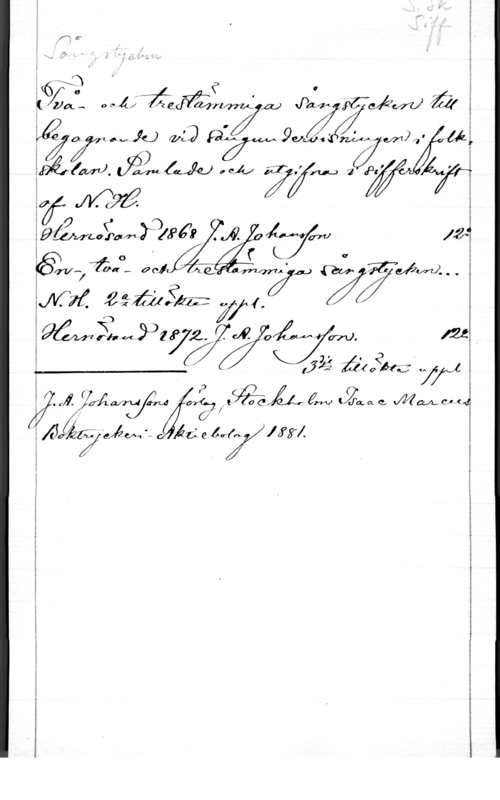 S. Sk
Siff
Sångstycken
Två- och trestämmiga sångstycken till
begagnande vid sångundervisningen i folk-
skolan. Samlade och utgifna i sifferskrift
af N. H.
Hernösand 1868 J. A. Johansson 12:o
En-, två- och trestämmiga sångstycken...
N. H. 2:a tillökta uppl.
Hernösand 1872. J. A. Johansson. 12:o
3:dje tillökta uppl
J. A. Johanssons förlag, Stockholm Isaac Marcus
Boktryckeri-Aktiebolag 1881.